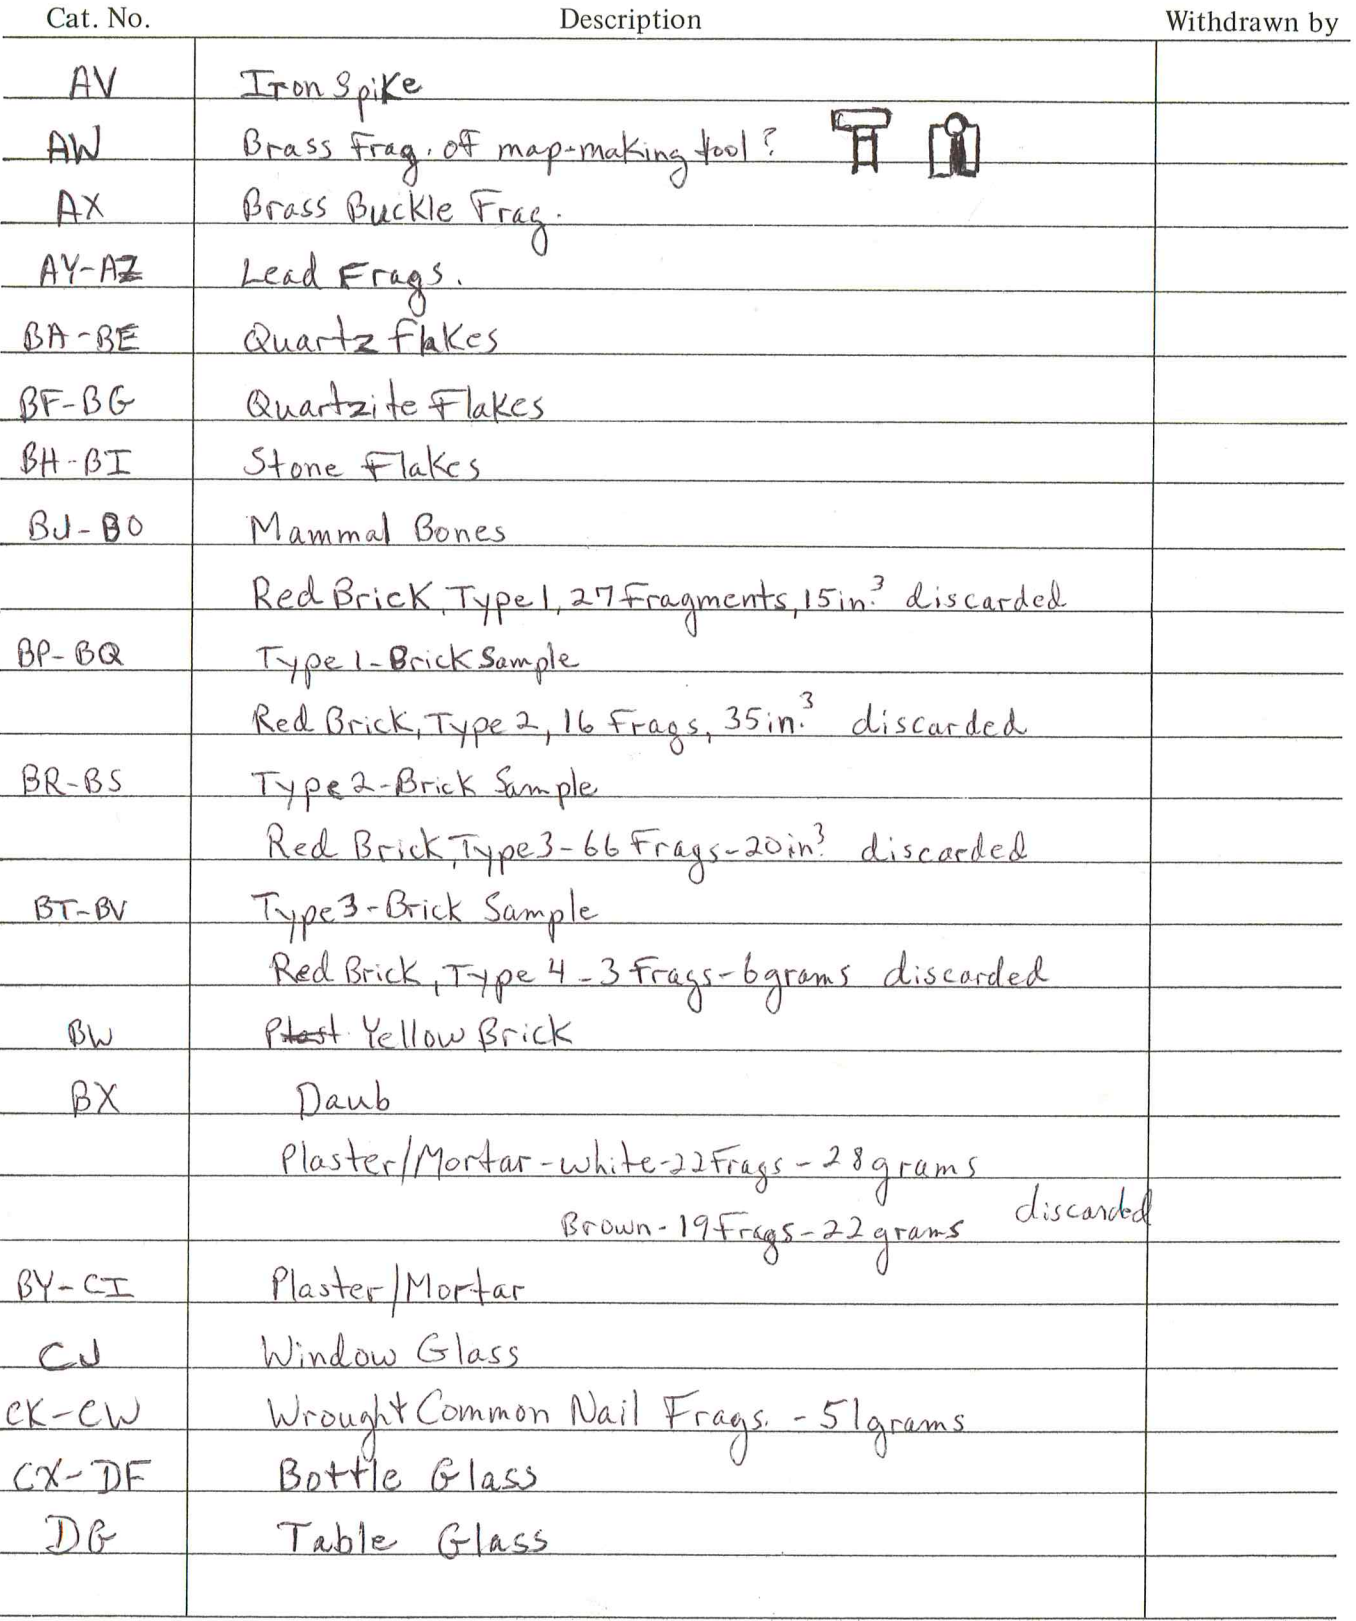 Cat. No. Description Withdrawn by
AV Iron Spike
AW Brass Frag. of map-making tool?
AX Brass Buckle Frag.
AY-AZ Lead Frags.
BA-BE Quartz flakes
BF-BG Quartzite Flakes
BH-BI Stone Flakes
BJ-BO Mammal Bones
Red Brick, Type 1, 27 Fragments, 15 in.³ discarded
BP-BQ Type 1-Brick Sample
Red Brick, Type 2, 16 Frags, 35 in.³ discarded
BR-BS Type 2-Brick Sample
Red Brick, Type 3-66 Frags-20 in.³ discarded
BT-BV Type 3-Brick Sample
Red Brick, Type 4-3 Frags-6 grams discarded
BW Yellow Brick
BX Daub
Plaster/Mortar-white-22 Frags-28 grams
Brown-19 Frags-22 grams discarded
BY-CI Plaster/Mortar
CJ Window Glass
CK-CW Wrought Common Nail Frags. -51 grams
CX-DF Bottle Glass
DG Table Glass